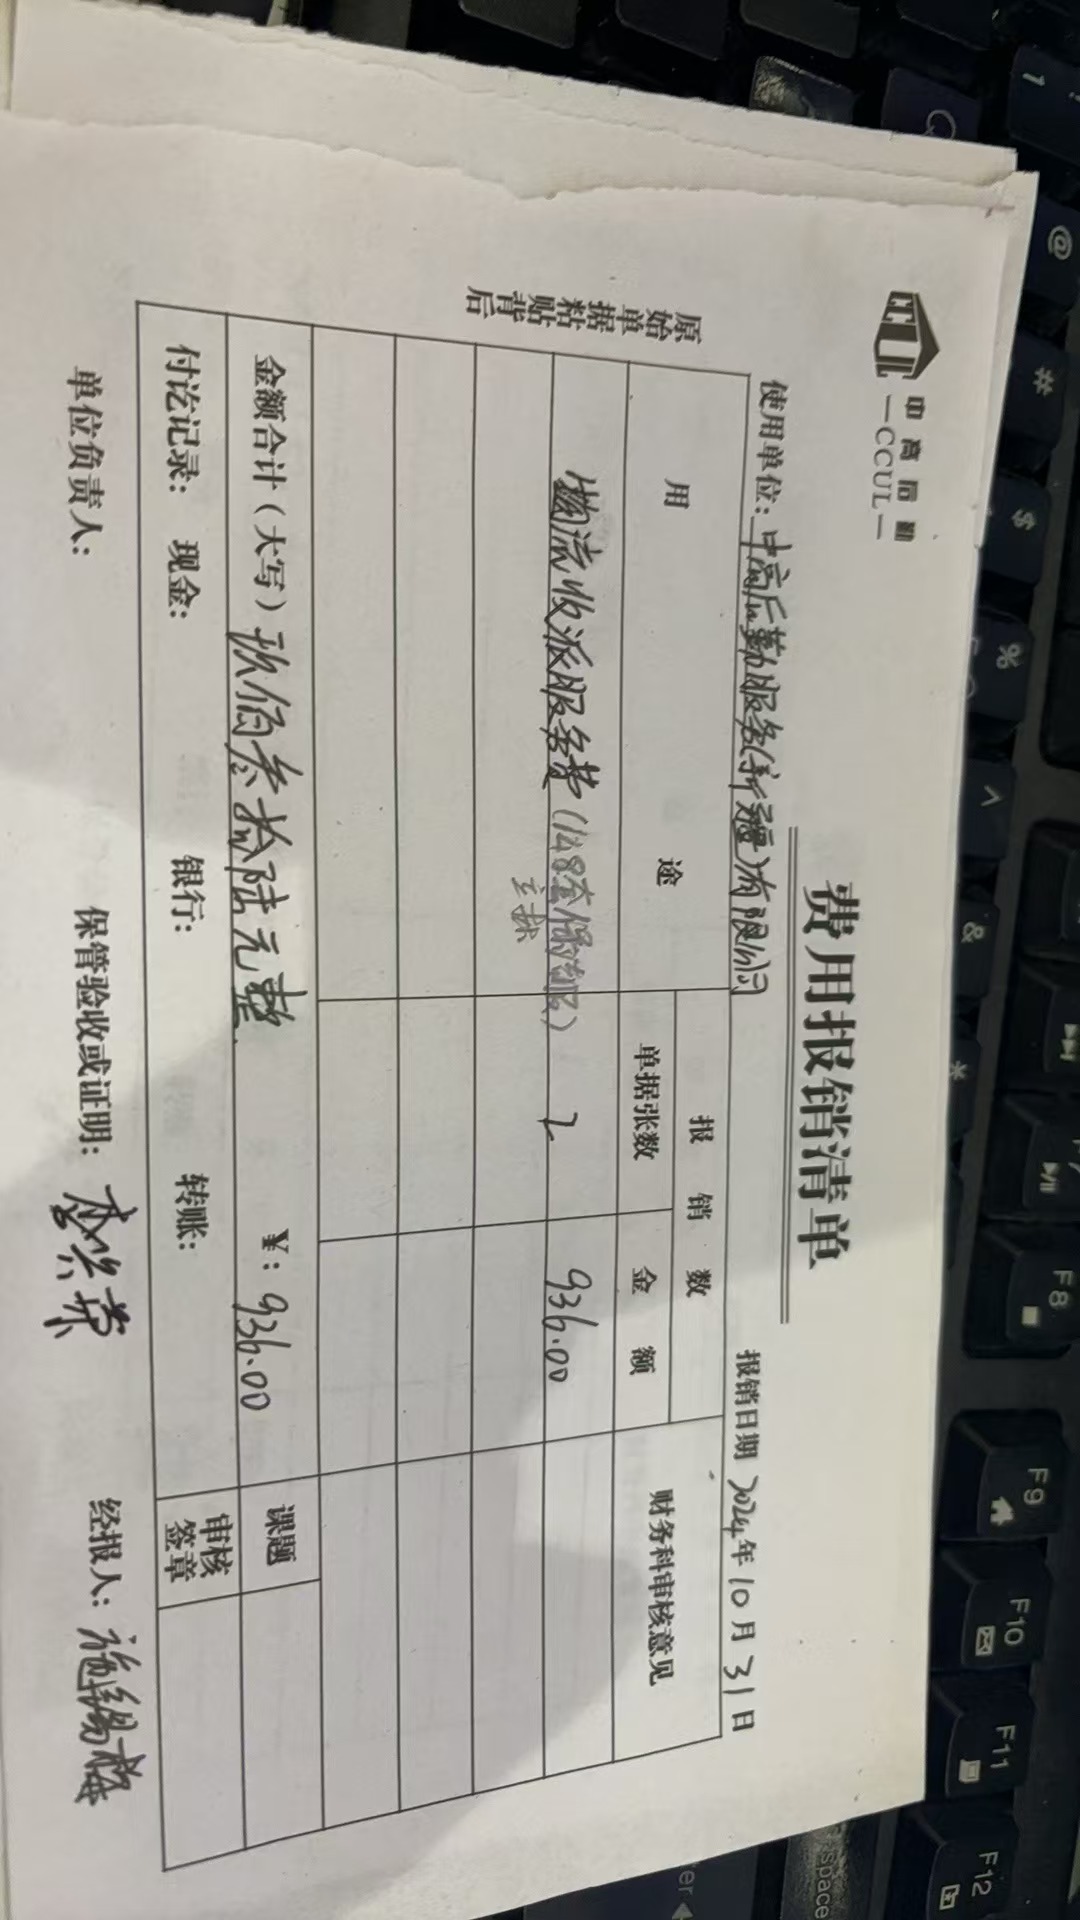 中高后勤
—CCUL—
费用报销清单
使用单位：中高后勤服务(新疆)有限公司
报销日期 2024年10月31日
用 途
报 销 数
财务科审核意见
单据张数
金 额
物流收派服务费(148套保洁服)
2
936.00
金额合计（大写）玖佰叁拾陆元整
¥：936.00
课题
付讫记录： 现金： 银行： 转账：
审核
签章
单位负责人：
保管验收或证明：
经报人：
原始单据粘贴背后
1
@
#
$
%
^
&
*
F8
F9
F10
F11
F12